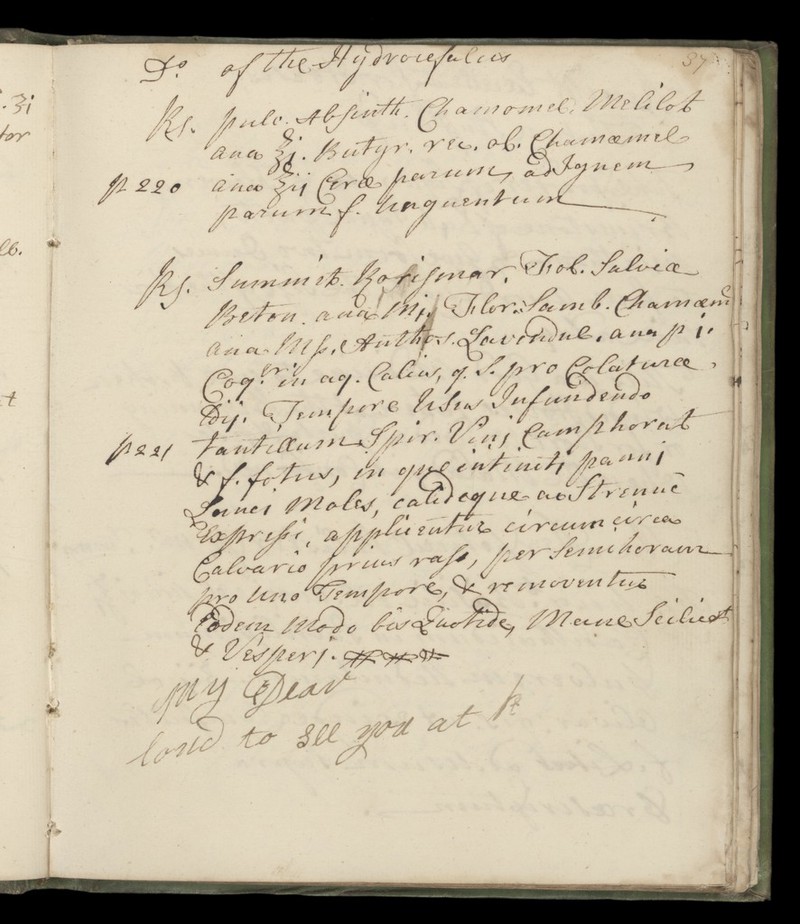 37
Do of the Hydrocefulus
Rs. pulv. Absinth. Chamomel. Melilot
ana ℥j. Butyr. rec. ol. Chamæmel
p 220 ana ℥ij Ceræ parum, ad Ignem
parum f. Unguentum
Rs. Summit. Rorismar. Fol. Salviæ
Beton. ana Mj. Flor. Samb. Chamæm
ana Mſs. Anthos. Lavendul. ana p j.
Coqr. in aq. Calcis, q. S. pro Colaturæ
Tempore Usus Infundendo
p 221 tantillum Spir. Vinj Camphorat
& f. fotus, in quo intincti pannj
Lanei Moles, calideque ac Strenue
Expressi, applicentur circum circa
Calvario prius raso, per Semihoram
pro Uno Tempore, & removentur
Eodem Modo bis Quotide, Mane Scilicet
& Vesperj.
My Dear
to see you at
.℥i
tor
lb.
t